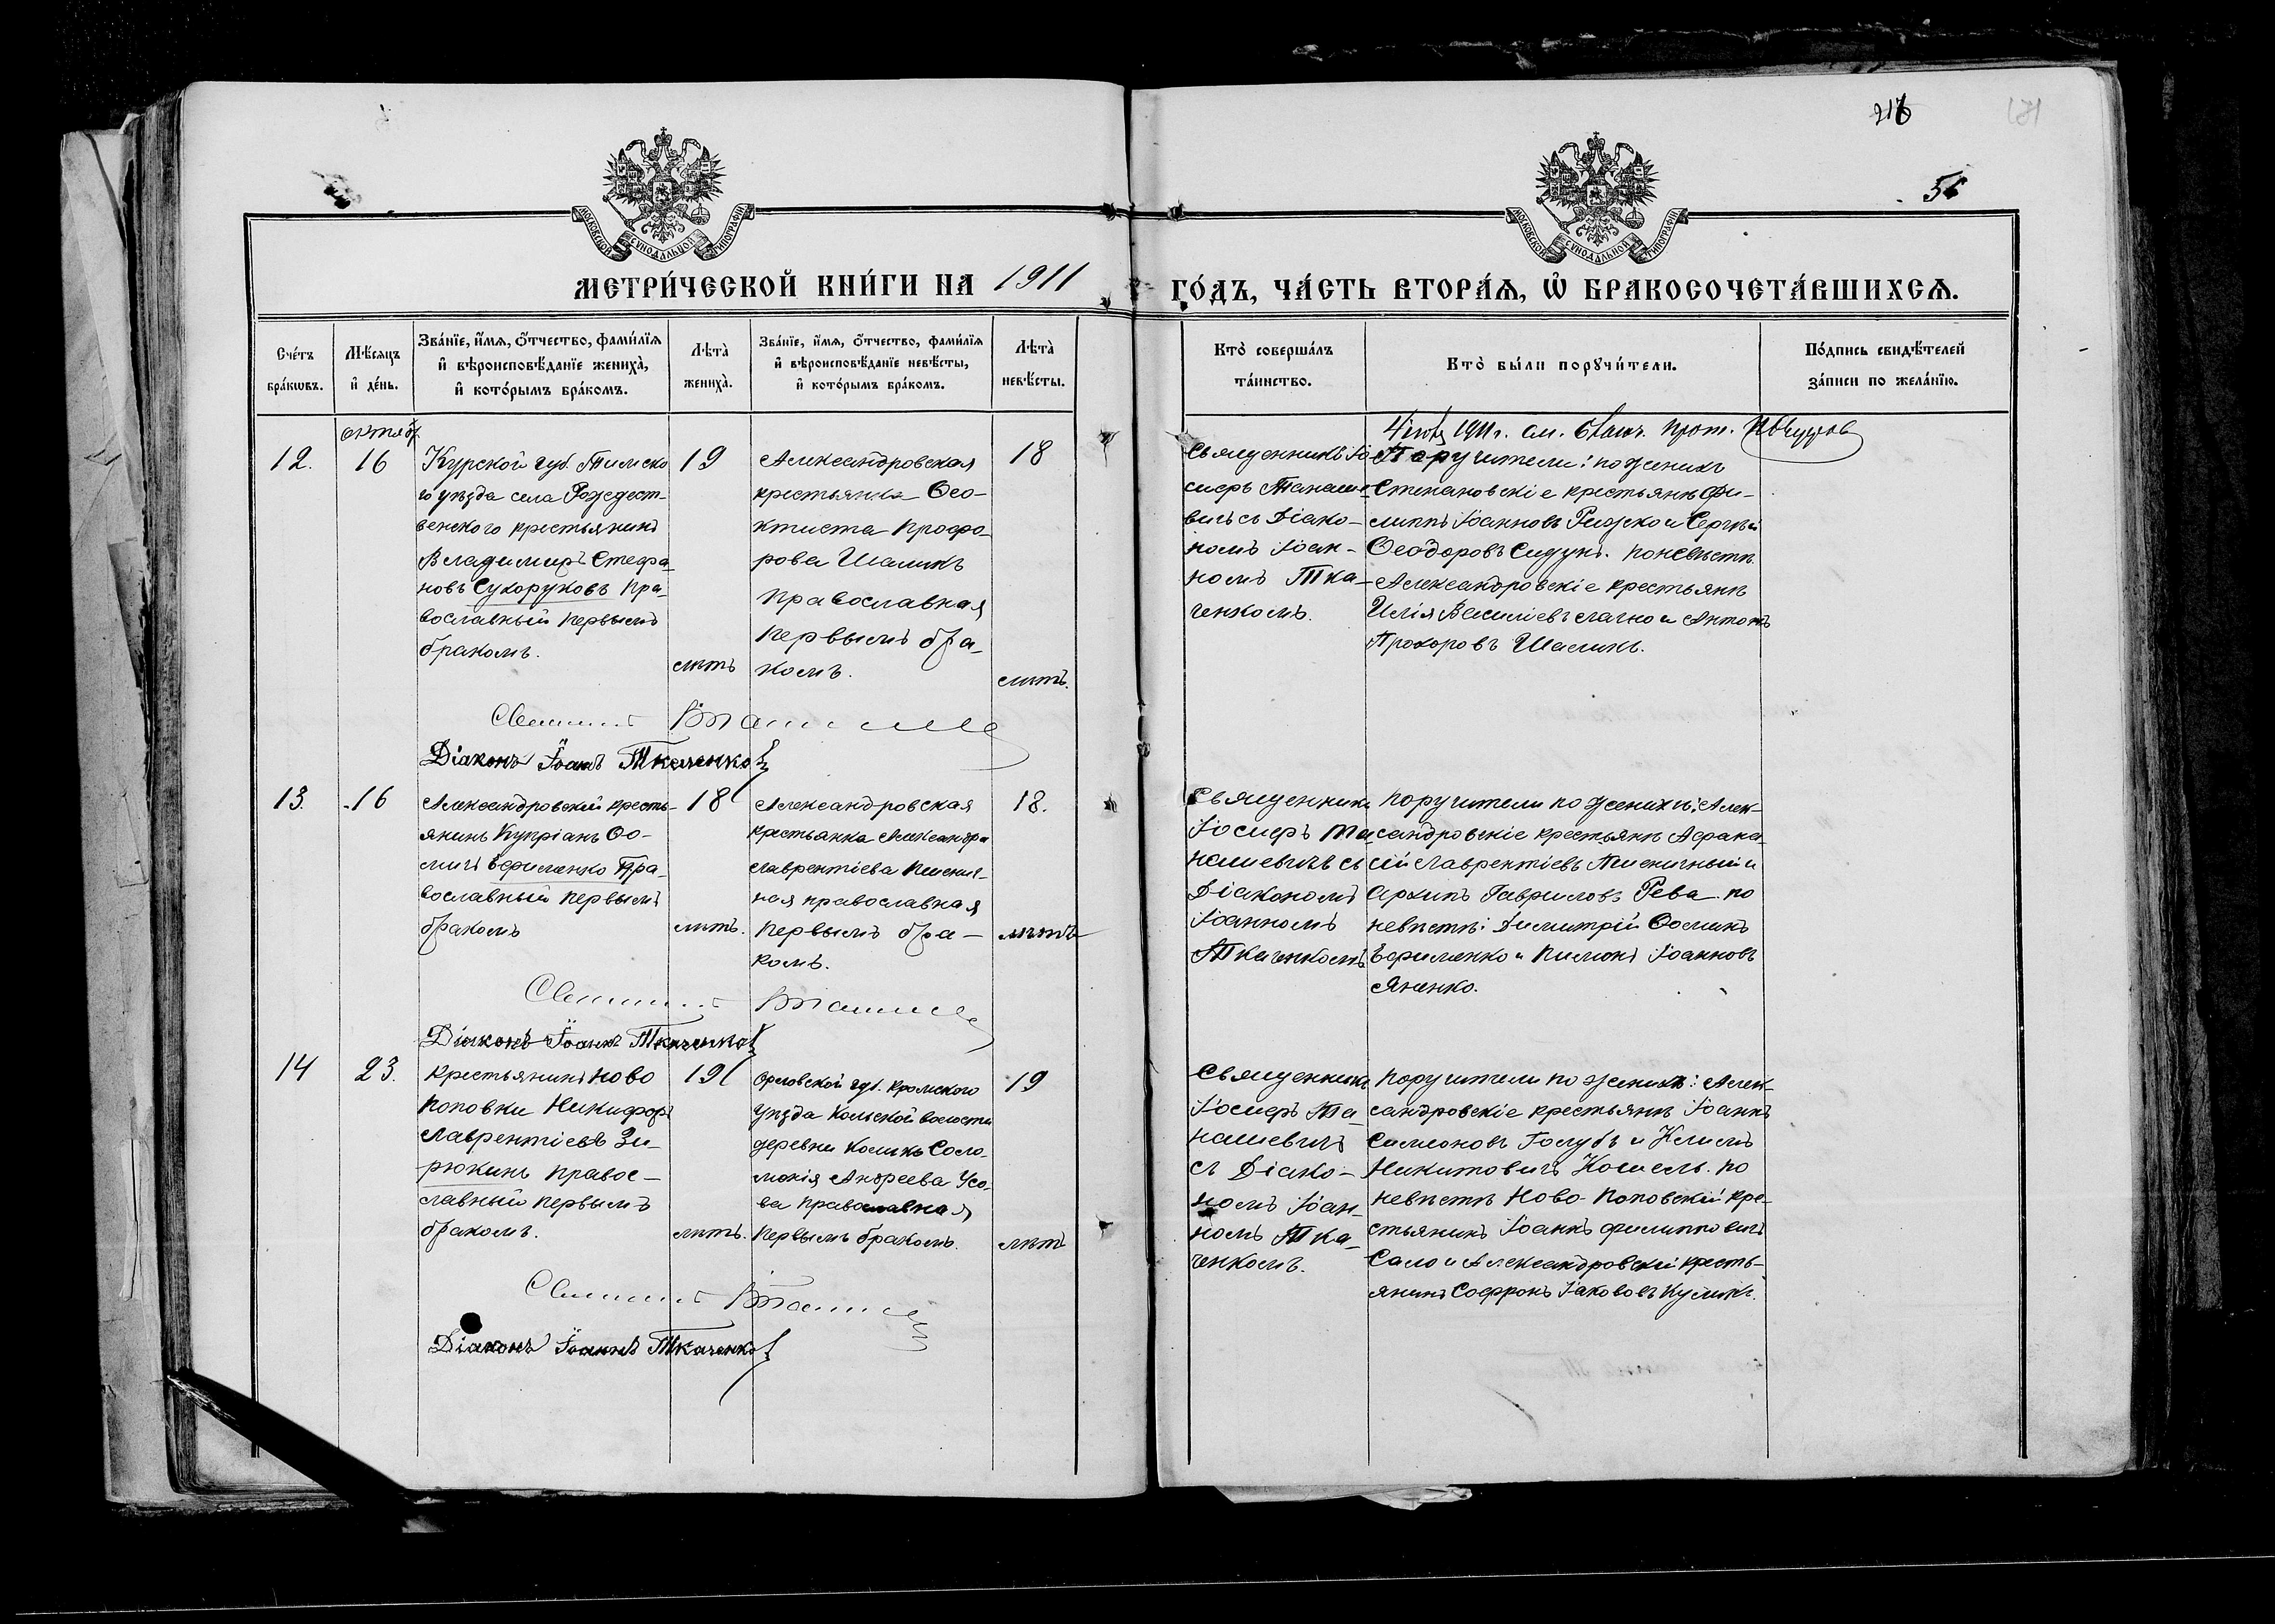 216
56
МОСКОВСКОЙ СУНОДАЛЬНОЙ ТИПОГРАФІИ
МОСКОВСКОЙ СУНОДАЛЬНОЙ ТИПОГРАФІИ
МЕТРИ́ЧЕСКОЙ КНИ́ГИ НА 1911
ГО́ДЪ, ЧА́СТЬ ВТОРА́Я, Ѡ҆ БРАКОСОЧЕТА́ВШИХСЯ.
Сче́тъ бра́кωвъ.
Мѣ́сяцъ и҆ де́нь.
Зва́нїе, и҆́мя, ѻ҆́тчество, фами́лїя
и҆ вѣроисповѣ́данїе жениха̀,
и҆ кото́рымъ бра́комъ.
Лѣта̀ жениха̀.
Зва́нїе, и҆́мя, ѻ҆́тчество, фами́лїя
и҆ вѣроисповѣ́данїе невѣ́сты,
и҆ кото́рымъ бра́комъ.
Лѣта̀ невѣ́сты.
Кто̀ соверша́лъ
та́инство.
Кто̀ бы́ли порꙋчи́тели.
По́дпись свидѣ́телей
за́писи по жела́нїю.
октябр.
12.
16
Курской губ. Тимско
го уѣзда села Рождест-
венского крестьянинъ
Владимиръ Стефа-
новъ Сухоруковъ пра-
вославный первымъ
бракомъ.
19
лѣтъ
Александровская
крестьянка Ѳео-
ктиста Прохо-
рова Шаликъ
православная
первымъ бра-
комъ.
18
лѣтъ.
1911 г. прот.
Священникъ Іо
сифъ Танаше-
вичъ съ Діако-
номъ Іоан-
номъ Тка-
ченкомъ.
Поручители: по женихѣ
Степановскіе крестьяне Фи-
липпъ Іоанновъ и Сергѣй
Ѳеодоровъ Сидунъ. По невѣстѣ
Александровскіе крестьяне
Илія Василіевъ и Антонъ
Прохоровъ Шаликъ.
Діаконъ Іоаннъ Ткаченко
13.
16
Александровскій кресть-
янинъ Купріанъ Ѳо-
минъ Ефименко Пра-
вославный первымъ
бракомъ
18
лѣтъ.
Александровская
крестьянка Александра
Лаврентіева Пшенич-
ная православная
первымъ бра-
комъ.
18.
лѣтъ
Священникъ
Іосифъ Та-
нашевичъ съ
Діакономъ
Іоанномъ
Ткаченкомъ
Поручители по женихѣ: Алек-
сандровскіе крестьяне Афана-
сій Лаврентіевъ Пшеничный и
Архипъ Гавриловъ Рева. по
невѣстѣ: Димитрій Ѳоминъ
Ефименко и Пименъ Іоанновъ
Яненко.
Діаконъ Іоаннъ Ткаченко
14
23.
Крестьянинъ Ново
Поповки Никифоръ
Лаврентіевъ Зи-
рюкинъ правос-
лавный первымъ
бракомъ.
19
лѣтъ.
Орловской губ. Кромского
уѣзда волости
деревни Соло-
монія Андреева Усо-
ва православная
первымъ бракомъ.
19
лѣтъ
Священникъ
Іосифъ Та
нашевичъ
съ Діако-
номъ Іоан-
номъ Тка-
ченкомъ.
Поручители по женихѣ: Алек-
сандровскіе крестьяне Іоаннъ
Симеоновъ Голубъ и Климъ
Никитовичъ Кошель. По
невѣстѣ Ново-Поповскій кре-
стьянинъ Іоаннъ Филипповичъ
Сало и Александровскій кресть-
янинъ Софронъ Іакововъ Куликъ.
Діаконъ Іоаннъ Ткаченко